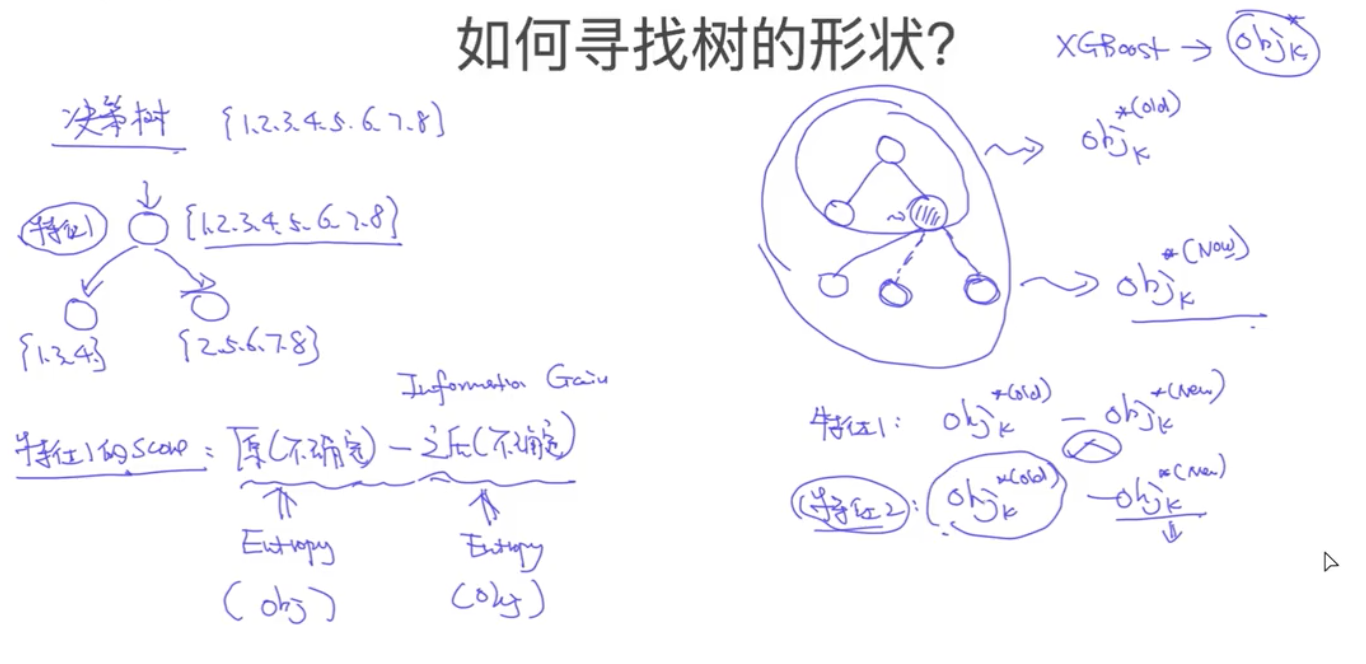 如何寻找树的形状?
XGBoost → obj_k^*
决策树 {1.2.3.4.5.6.7.8}
特征1 {1.2.3.4.5.6.7.8}
{1.3.4} {2.5.6.7.8}
Information Gain
特征1的score: 原(不确定) - 之后(不确定)
Entropy Entropy
(obj) (obj)
obj_k^*(old)
obj_k^*(New)
特征1: obj_k^*(old) - obj_k^*(New)
特征2: obj_k^*(old) - obj_k^*(New)